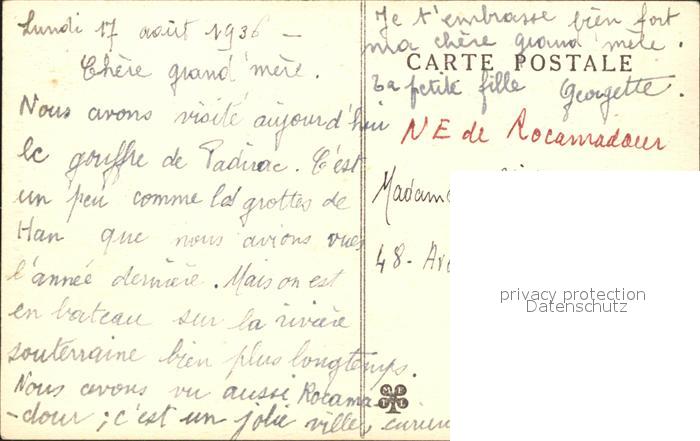 Lundi 17 août 1936 –
Chère grand'mère.
Nous avons visité aujourd'hui
le gouffre de Padirac. C'est
un peu comme la grottes de
Han que nous avions vues
l'année dernière. Mais on est
en bateau sur la rivière
souterraine bien plus longtemps.
Nous avons vu aussi Rocama-
-dour ; c'est un jolie ville, curieu
Je t'embrasse bien fort
ma chère grand'mère.
CARTE POSTALE
Ta petite fille Georgette.
NE de Rocamadour
Madam
48 - Av
privacy protection
Datenschutz